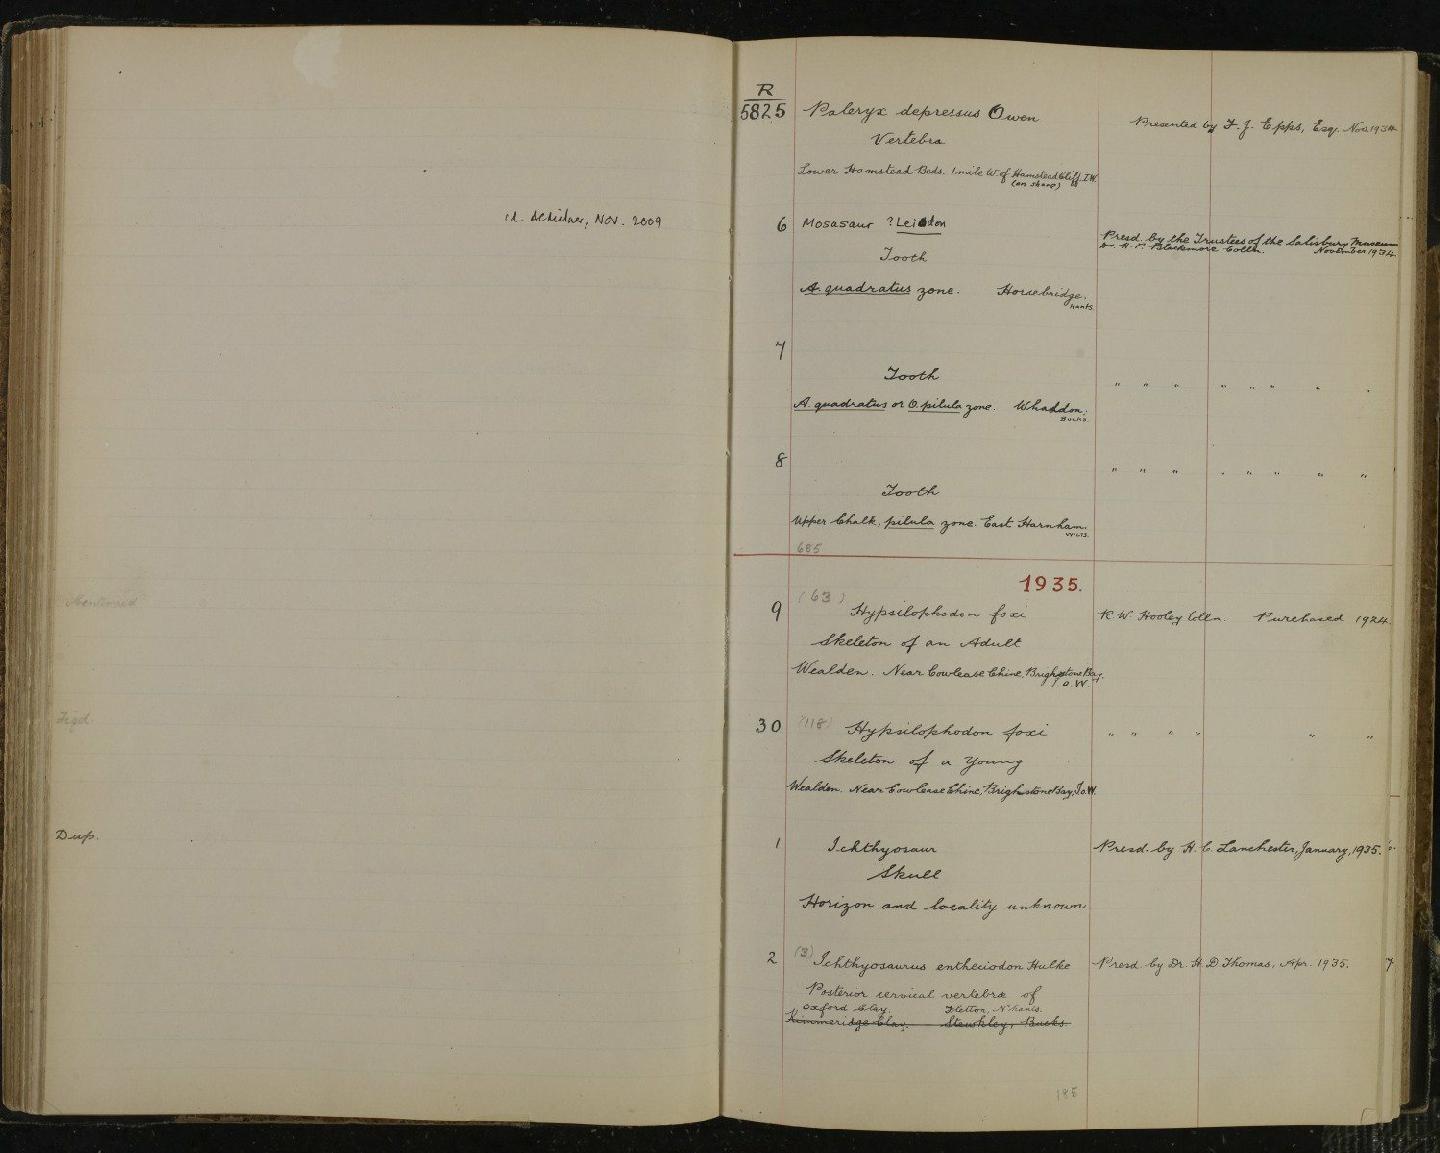 NOV. 2009
Mentioned
Figd.
Dup.
R
5825 Paleryx depressus Owen
Presented by F. J. Epps, Esq. Nov. 1934
Vertebra
Lower Hamstead Beds. 1 mile W. of Hamstead Cliff, I.W.
(on shore)
6 Mosasaur ? Leiodon
Presd. by the Trustees of the Salisbury Museum
Blackmore Colln. November 1934.
Tooth
A. quadratus zone. Horsebridge.
Hants.
7
Tooth " " " " " " " "
A. quadratus or O. pilula zone. Whaddon,
Bucks.
8 " " " " " " " "
Tooth
Upper Chalk, pilula zone. East Harnham.
Wilts.
685
1935.
(63)
9 Hypsilophodon foxi R. W. Hooley Colln. Purchased 1924.
Skeleton of an Adult
Wealden. Near Cowlease Chine, Brighstone Bay,
I. o. W.
30 (118) Hypsilophodon foxi " " " " " "
Skeleton of a Young
Wealden. Near Cowlease Chine, Brighstone Bay, I.o.W.
1 Ichthyosaur Presd. by H. C. Lanchester, January, 1935.
Skull
Horizon and locality unknown.
2 (3) Ichthyosaurus entheciodon Hulke Presd. by Dr. H. D Thomas, Apr. 1935. 7
Posterior cervical vertebra of
Oxford Clay. Fletton, N'hants.
Kimmeridge Clay. Stewkley, Bucks.
185